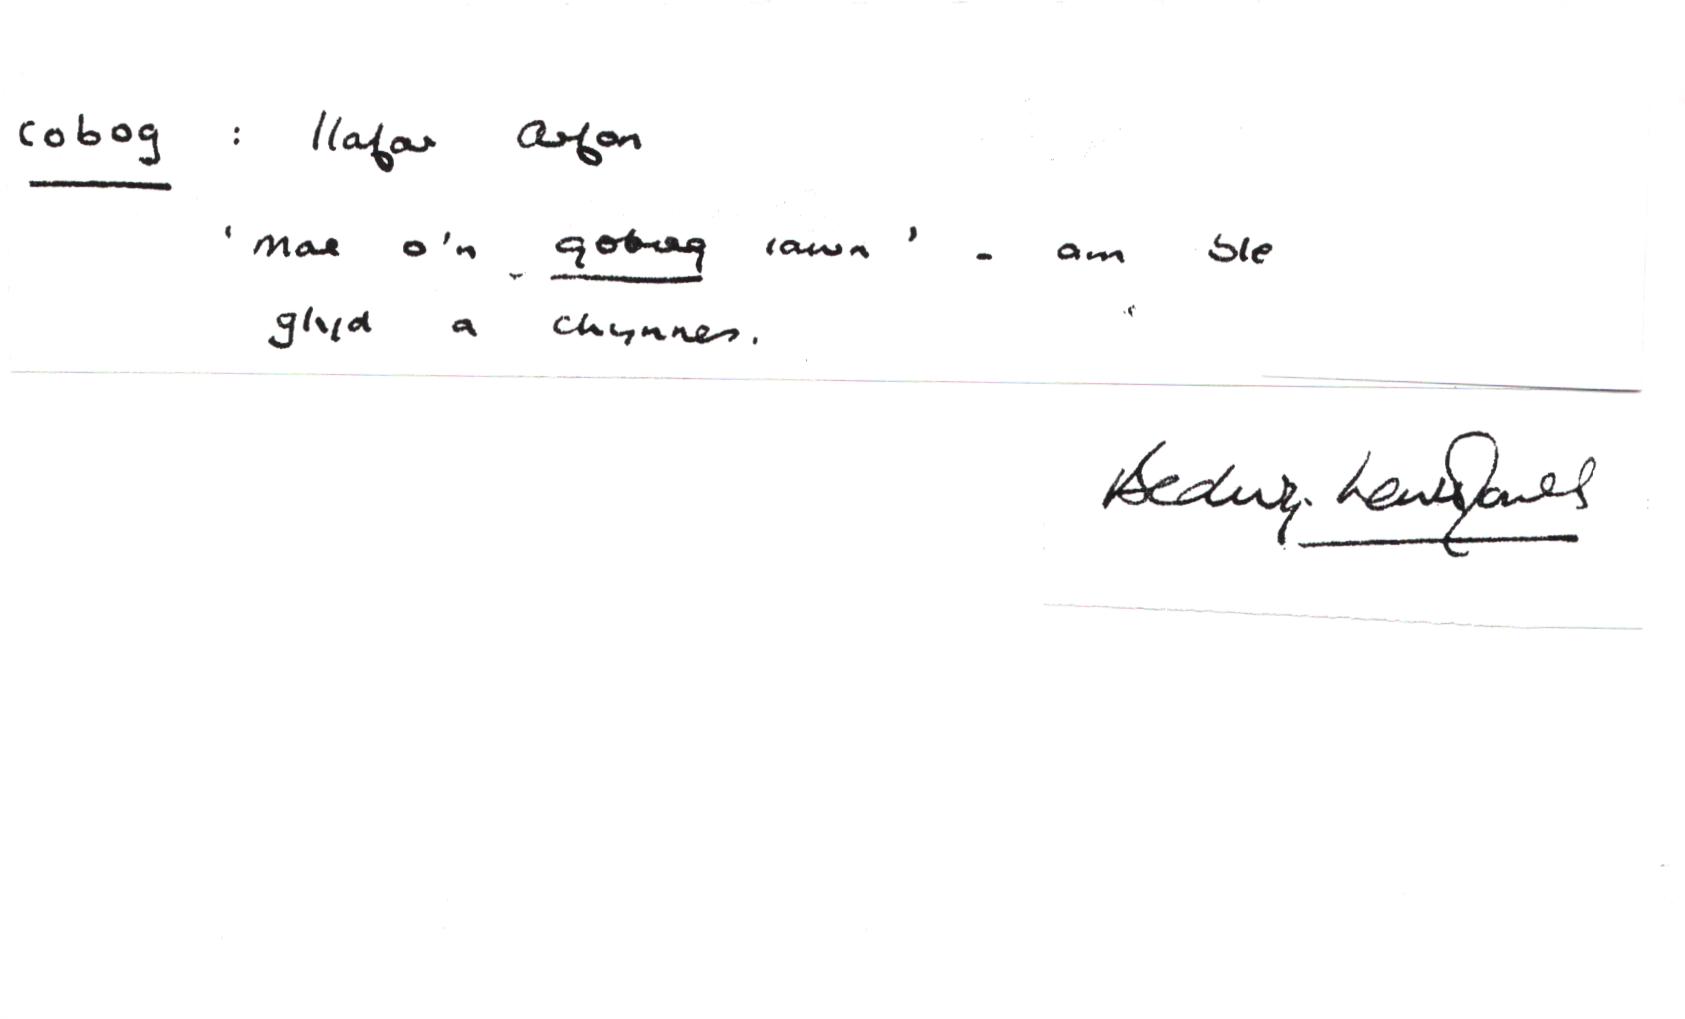 cobog : llafar Arfon
'Mae o'n gobog iawn' - am le
glyd a chynnes.
Bedwyr Lewis Jones